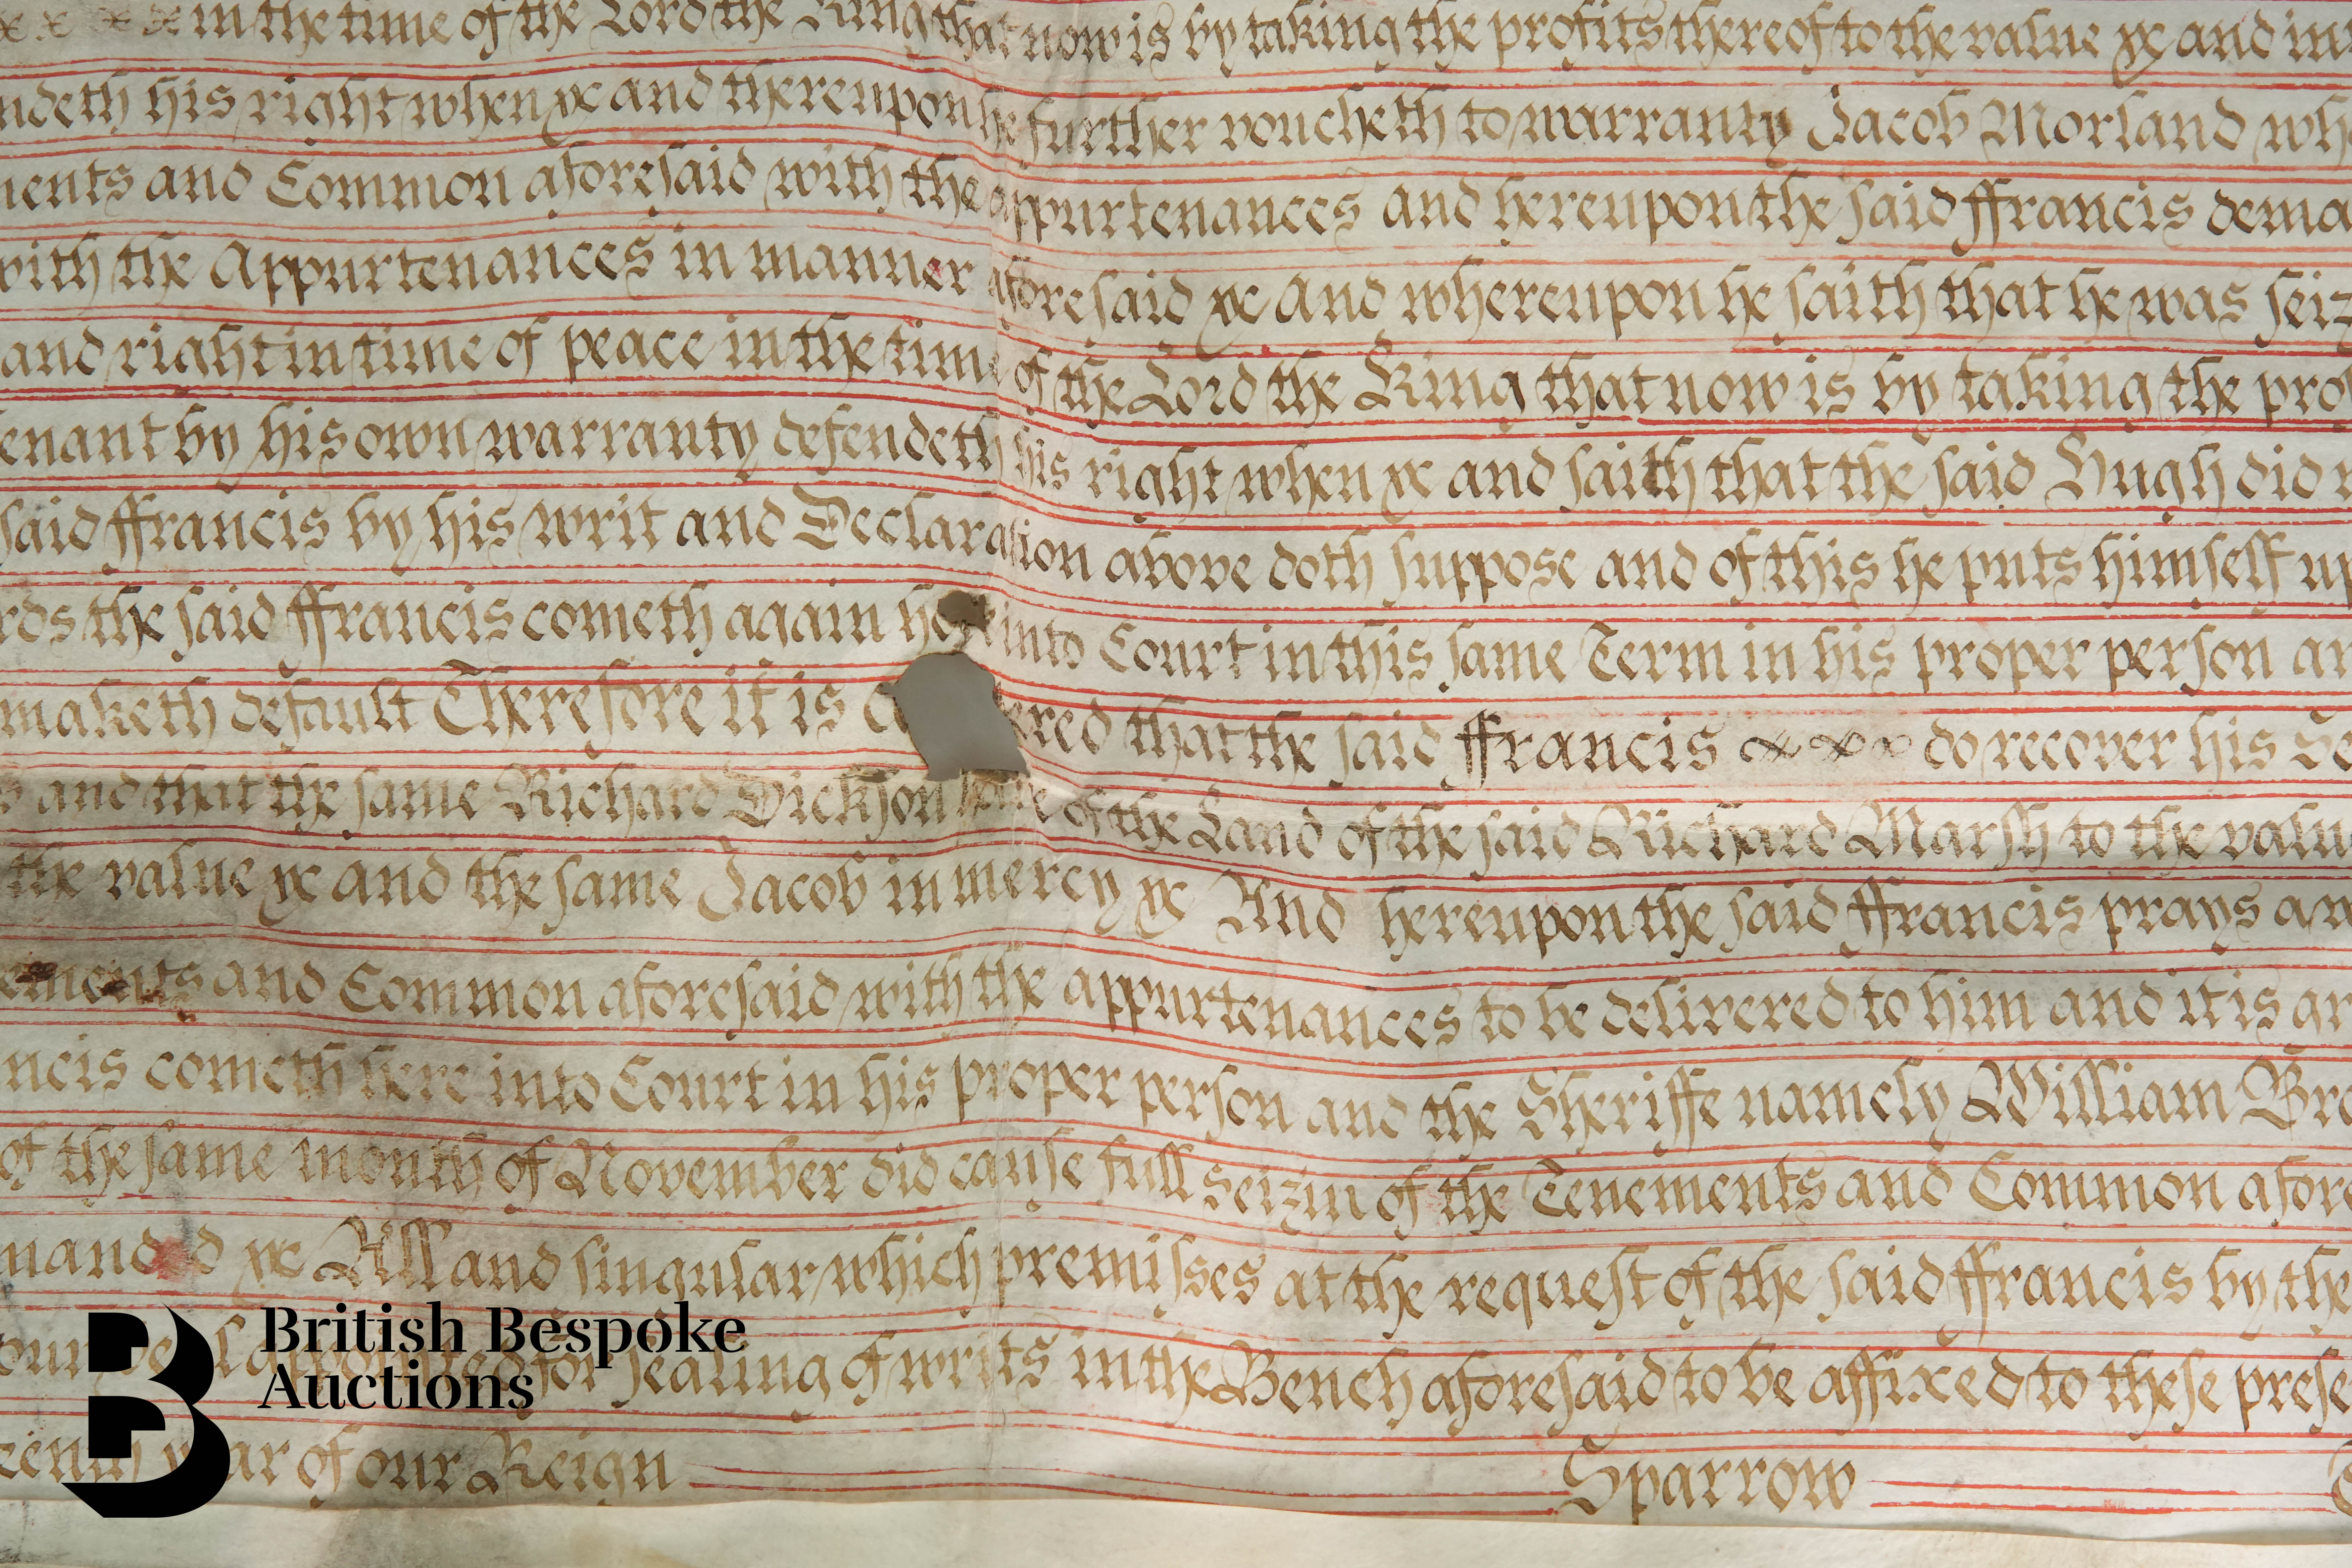 in the time of the Lord the King that now is by taking the profits thereof to the value &c and in
ndeth his right when &c and thereupon he further voucheth to warranty Jacob Morland wh
ments and Common aforesaid with the appurtenances and hereupon the said ffrancis dema
with the Appurtenances in manner aforesaid &c And whereupon he saith that he was seiz
and right in time of peace in the time of the Lord the King that now is by taking the prof
enant by his own warranty defendeth his right when &c and saith that the said Hugh did
said ffrancis by his writ and Declaration above doth suppose and of this he puts himself up
rds the said ffrancis cometh again here into Court in this same Term in his proper person an
maketh default Therefore it is co ered that the said ffrancis do recover his Se
s and that the same Richard Dickson have of the Land of the said Richard Marsh to the valu
the value &c and the same Jacob in mercy &c And hereupon the said ffrancis prays a w
ements and Common aforesaid with the appurtenances to be delivered to him and it is gr
ncis cometh here into Court in his proper person and the Sheriffe namely William Bro
of the same month of November did cause full Seizin of the Tenements and Common afore
manded &c All and singular which premisses at the request of the said ffrancis by the
our Seal appointed for sealing of writs in the Bench aforesaid to be affixed to these prese
teenth year of our Reign Sparrow
B British Bespoke
Auctions